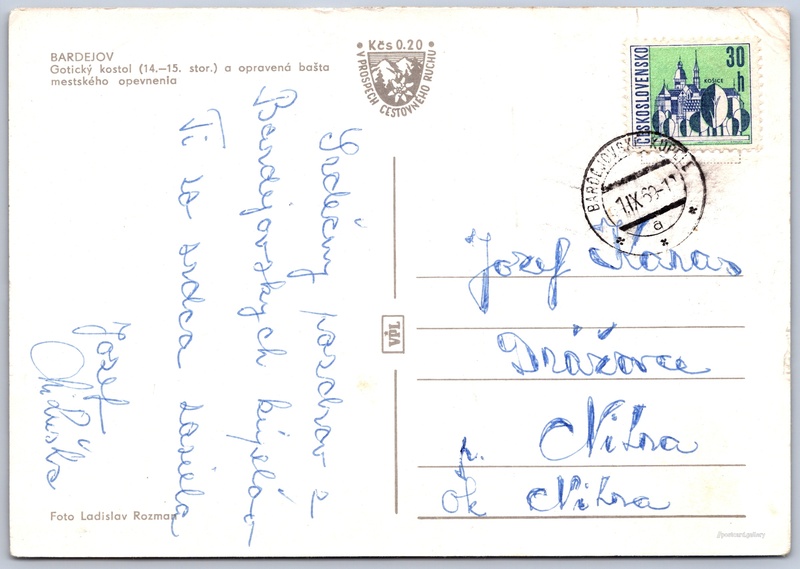 BARDEJOV
Gotický kostol (14.—15. stor.) a opravená bašta
mestského opevnenia
• Kčs 0.20 •
V PROSPECH CESTOVNÉHO RUCHU
ČESKOSLOVENSKO
30 h
KOŠICE
BARDEJOVSKÉ KÚPELE
1.IX 69-11
a
Srdečný pozdrav z
Bardejovských kúpeľov
Ti zo srdca zasiela
Jozef
VPL
Jozef Karas
Dražovce
p. Nitra
ok Nitra
Foto Ladislav Rozman
//postcard.gallery